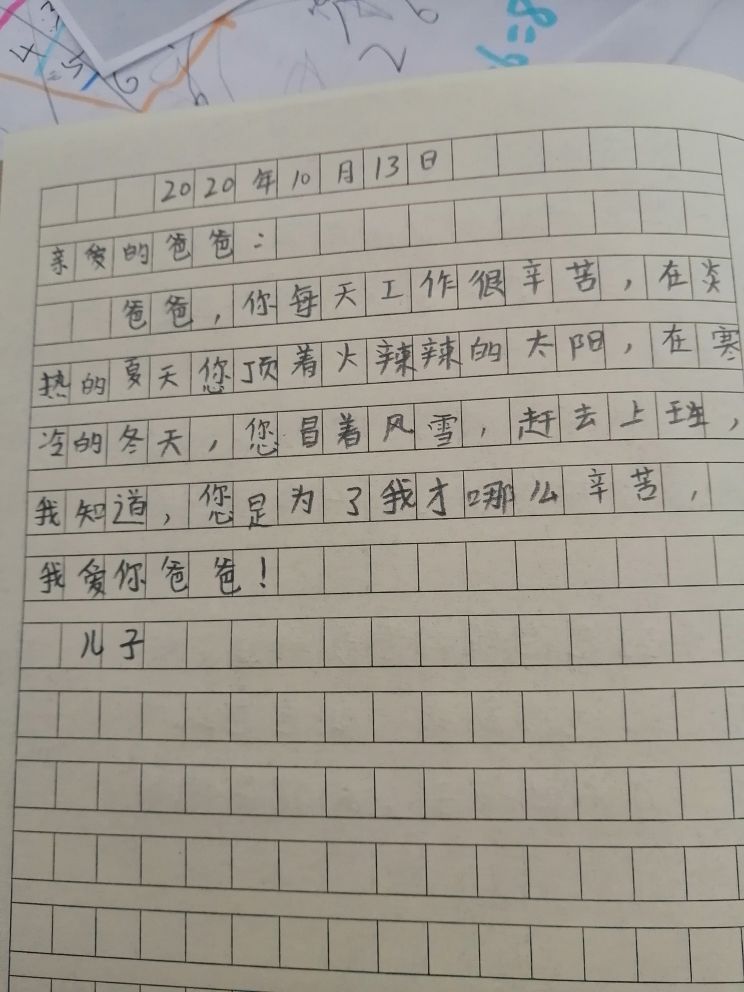 4 3
5 6
2 6
8=
2020年10月13日
亲爱的爸爸：
爸爸，你每天工作很辛苦，在炎
热的夏天您顶着火辣辣的太阳，在寒
冷的冬天，您冒着风雪，赶去上班，
我知道，您是为了我才哪么辛苦，
我爱你爸爸！
儿子